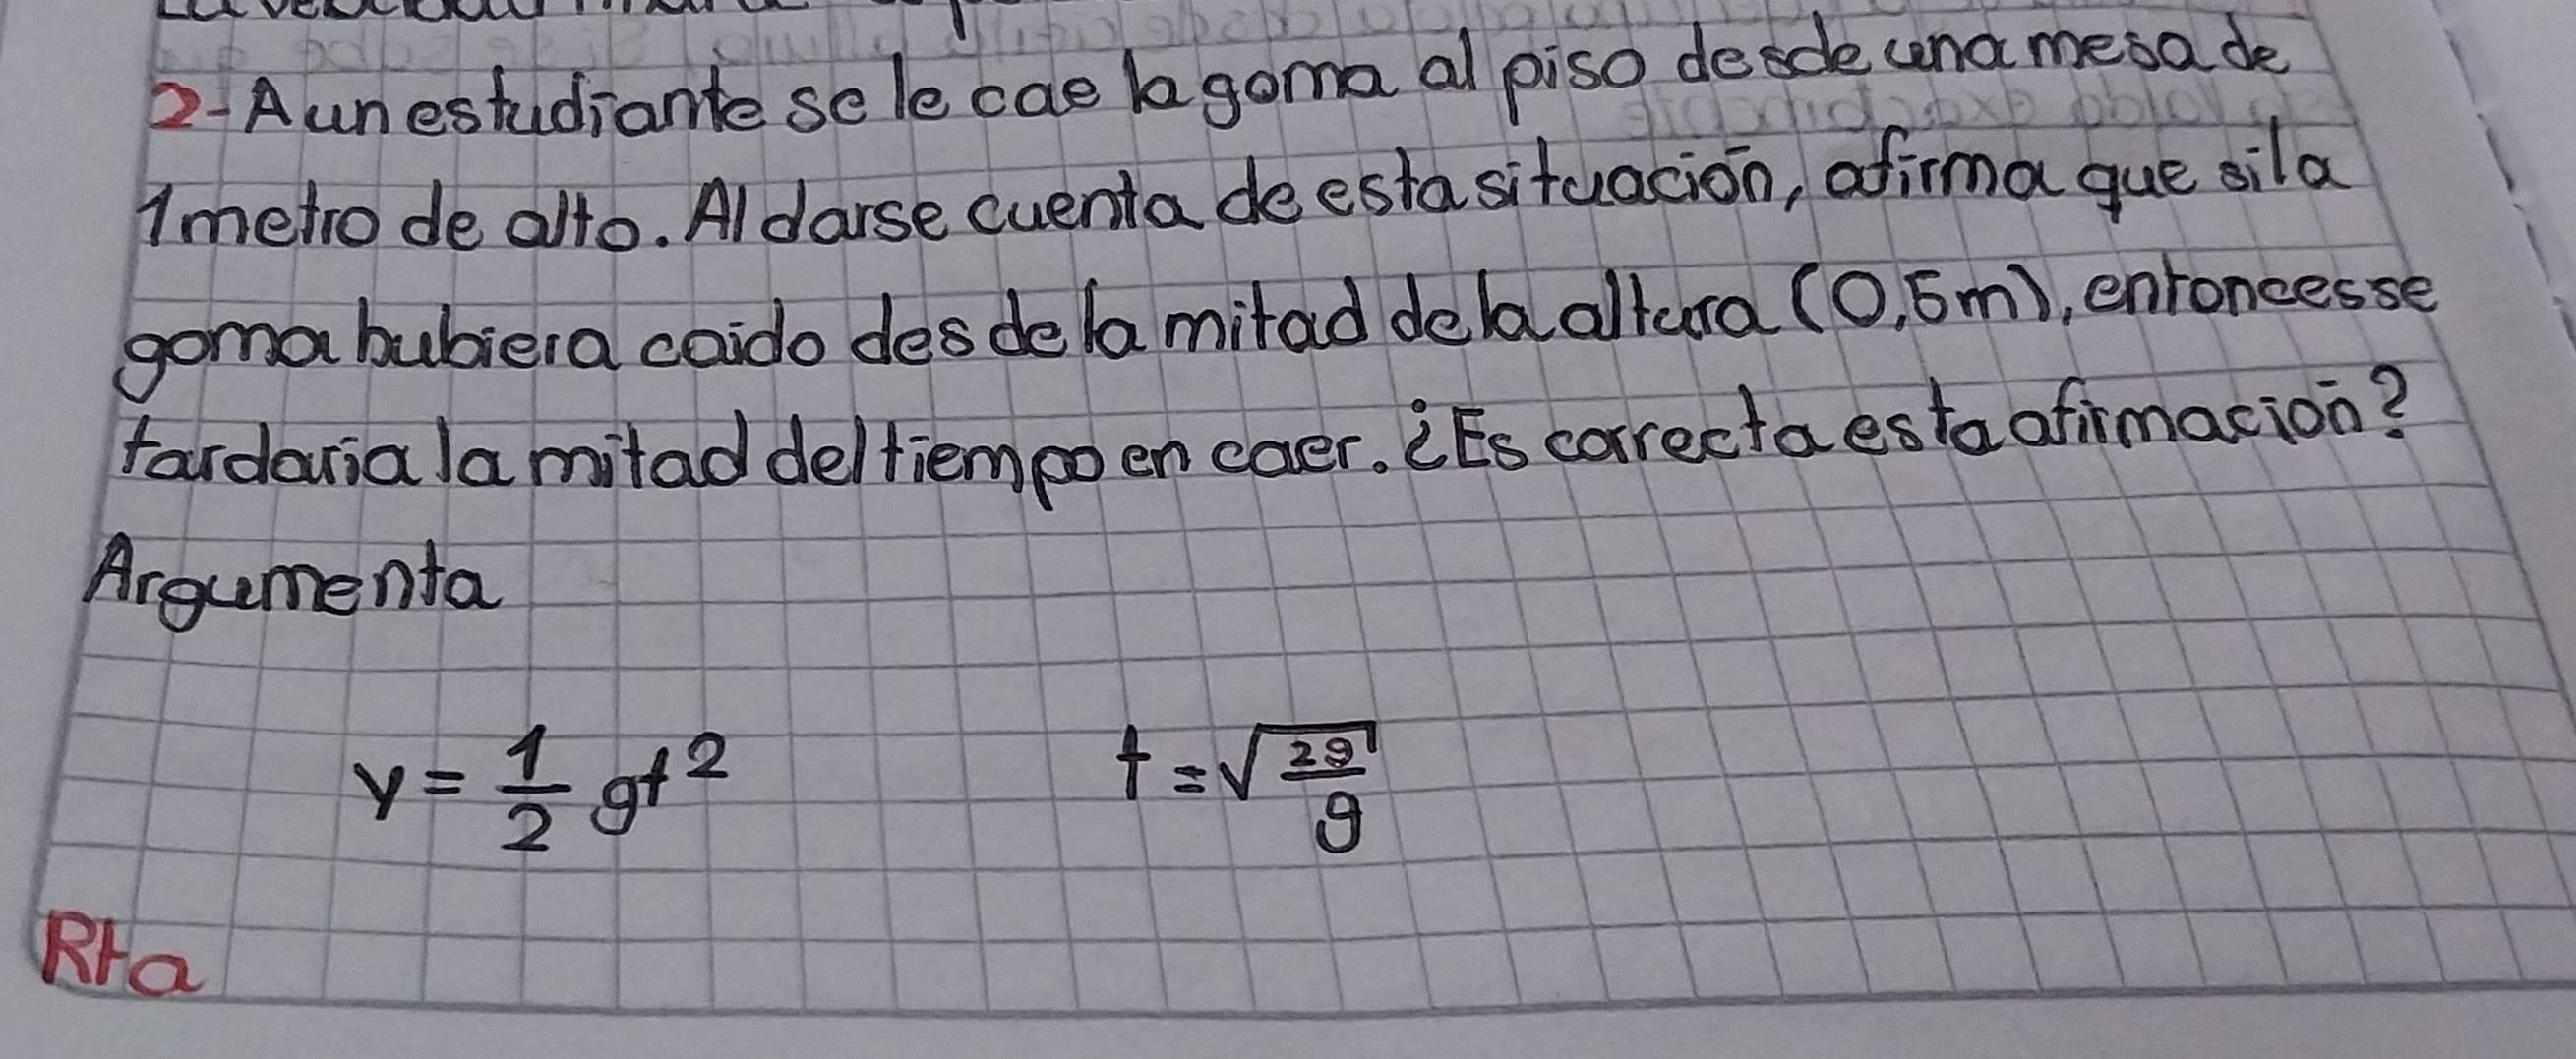 2-A un estudiante se le cae la goma al piso desde una mesa de
1 metro de alto. Al darse cuenta de esta situación, afirma que si la
goma hubiera caido desde la mitad de la altura (0,5m), entonces se
tardaria la mitad del tiempo en caer. ¿Es correcta esta afirmación?
Argumenta
y = 1/2 gt² t = √(2g/g)
Rta